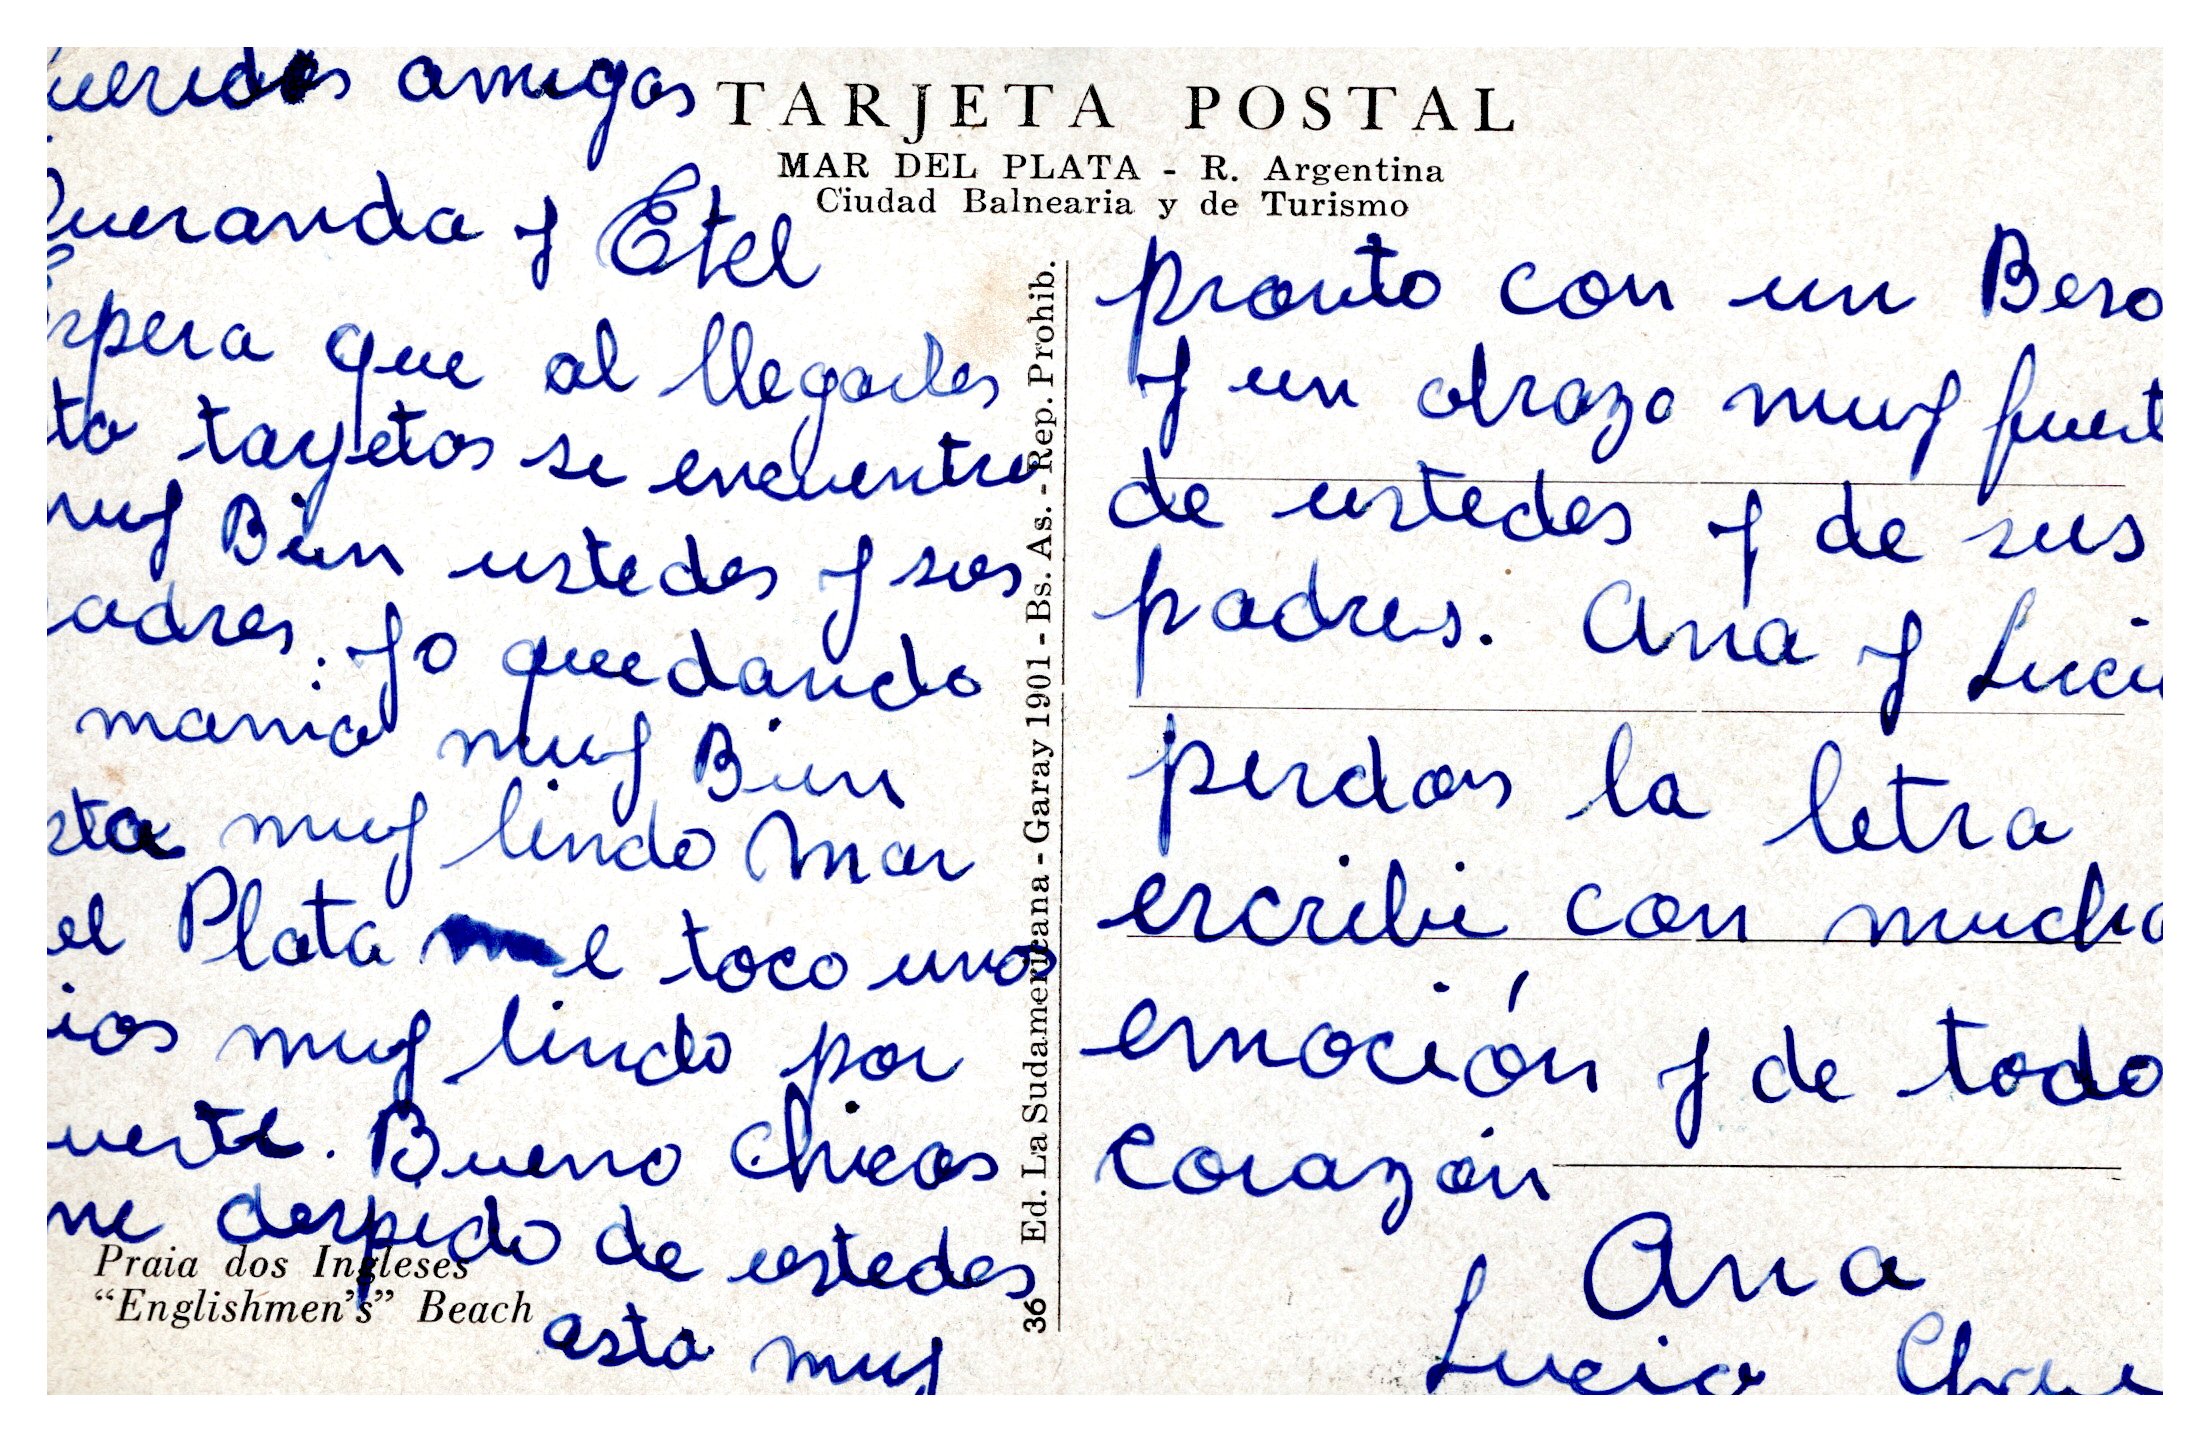 ueridos amigos
TARJETA POSTAL
MAR DEL PLATA - R. Argentina
Ciudad Balnearia y de Turismo
Queranda y Etel
spera que al llegarles
ta tarjetas se encuentre
muy Bien ustedes y sus
adres. yo quedando
mania muy Bien
sta muy lindo Mar
el Plata me toco unos
ias muy lindo por
uerte. Bueno Chicas
me despido de ustedes
asta muy
Praia dos Ingleses
“Englishmen's” Beach
36 Ed. La Sudamericana - Garay 1901 - Bs. As. - Rep. Prohib.
pronto con un Beso
y un abrazo muy fuert
de ustedes y de sus
padres. Ana y Luci
perdon la letra
escribi con mucha
emoción y de todo
corazón
Ana
Lucia